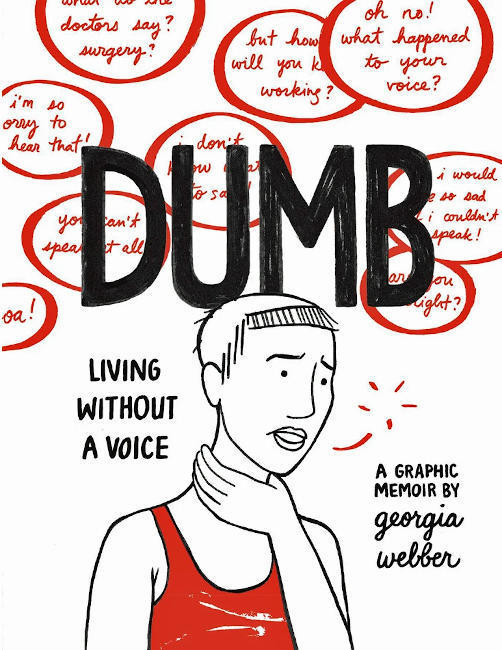 what do the
doctors say?
surgery?
but how
will you k
working?
oh no!
what happened
to your
voice?
i'm so
orry to
hear that!
i don't
know what
to sa
i would
e so sad
i couldn't
speak!
you can't
speak at all
are you
ight?
oa!
DUMB
LIVING
WITHOUT
A VOICE
A GRAPHIC
MEMOIR BY
georgia
webber